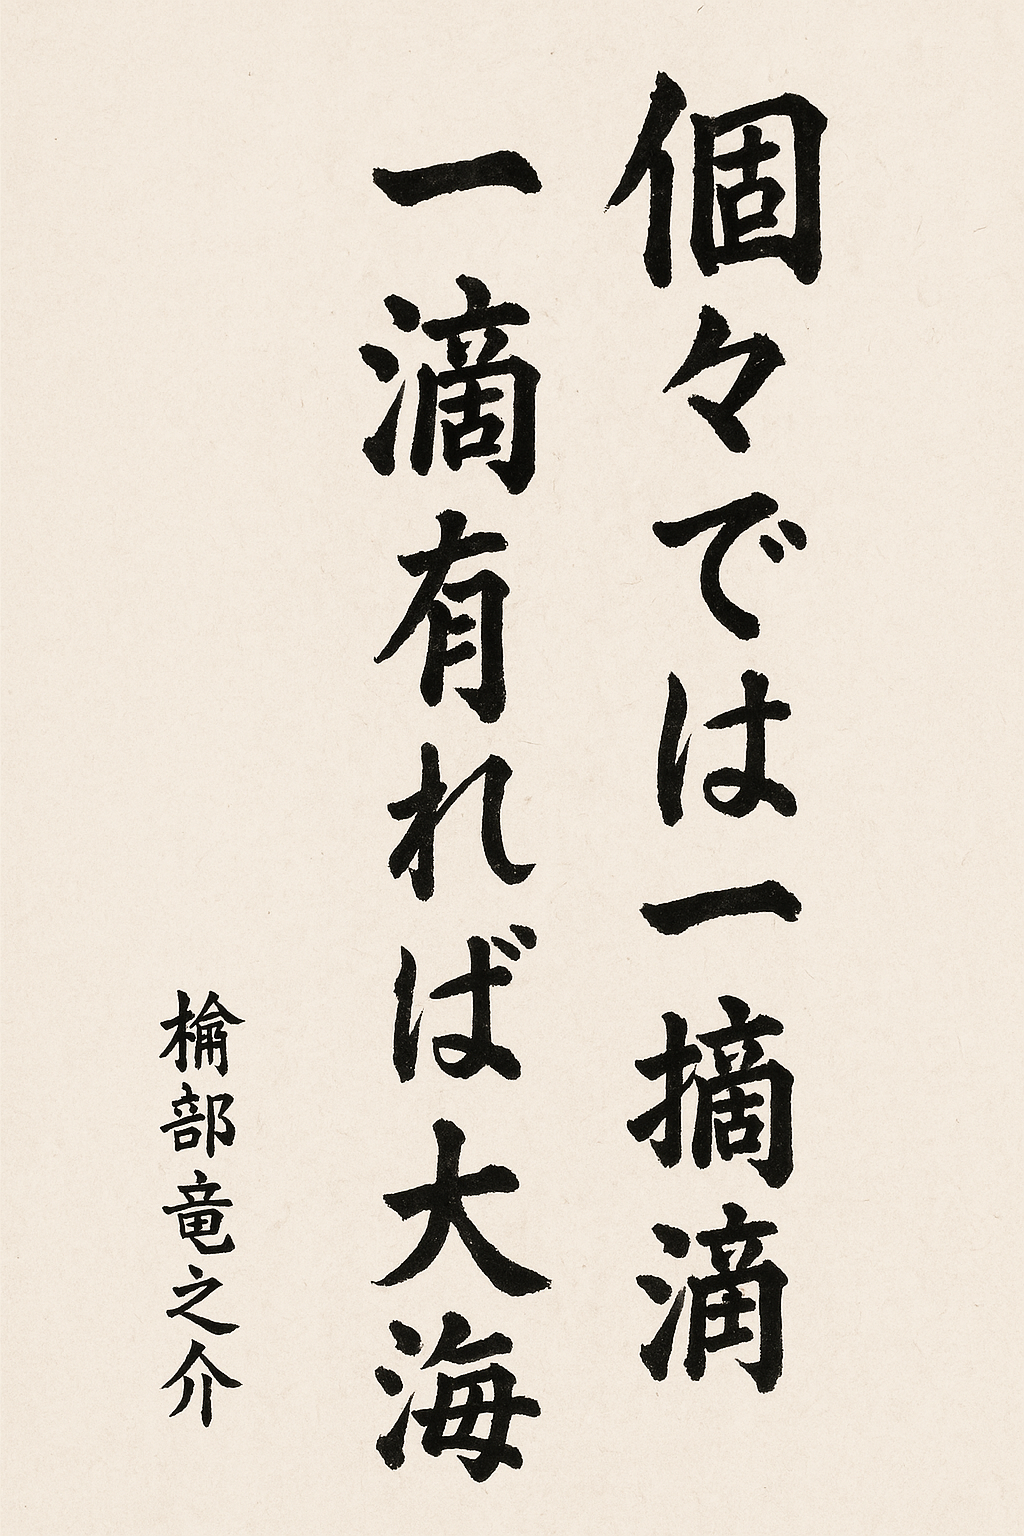 個々では一摘滴
一滴有れば大海
部竜之介